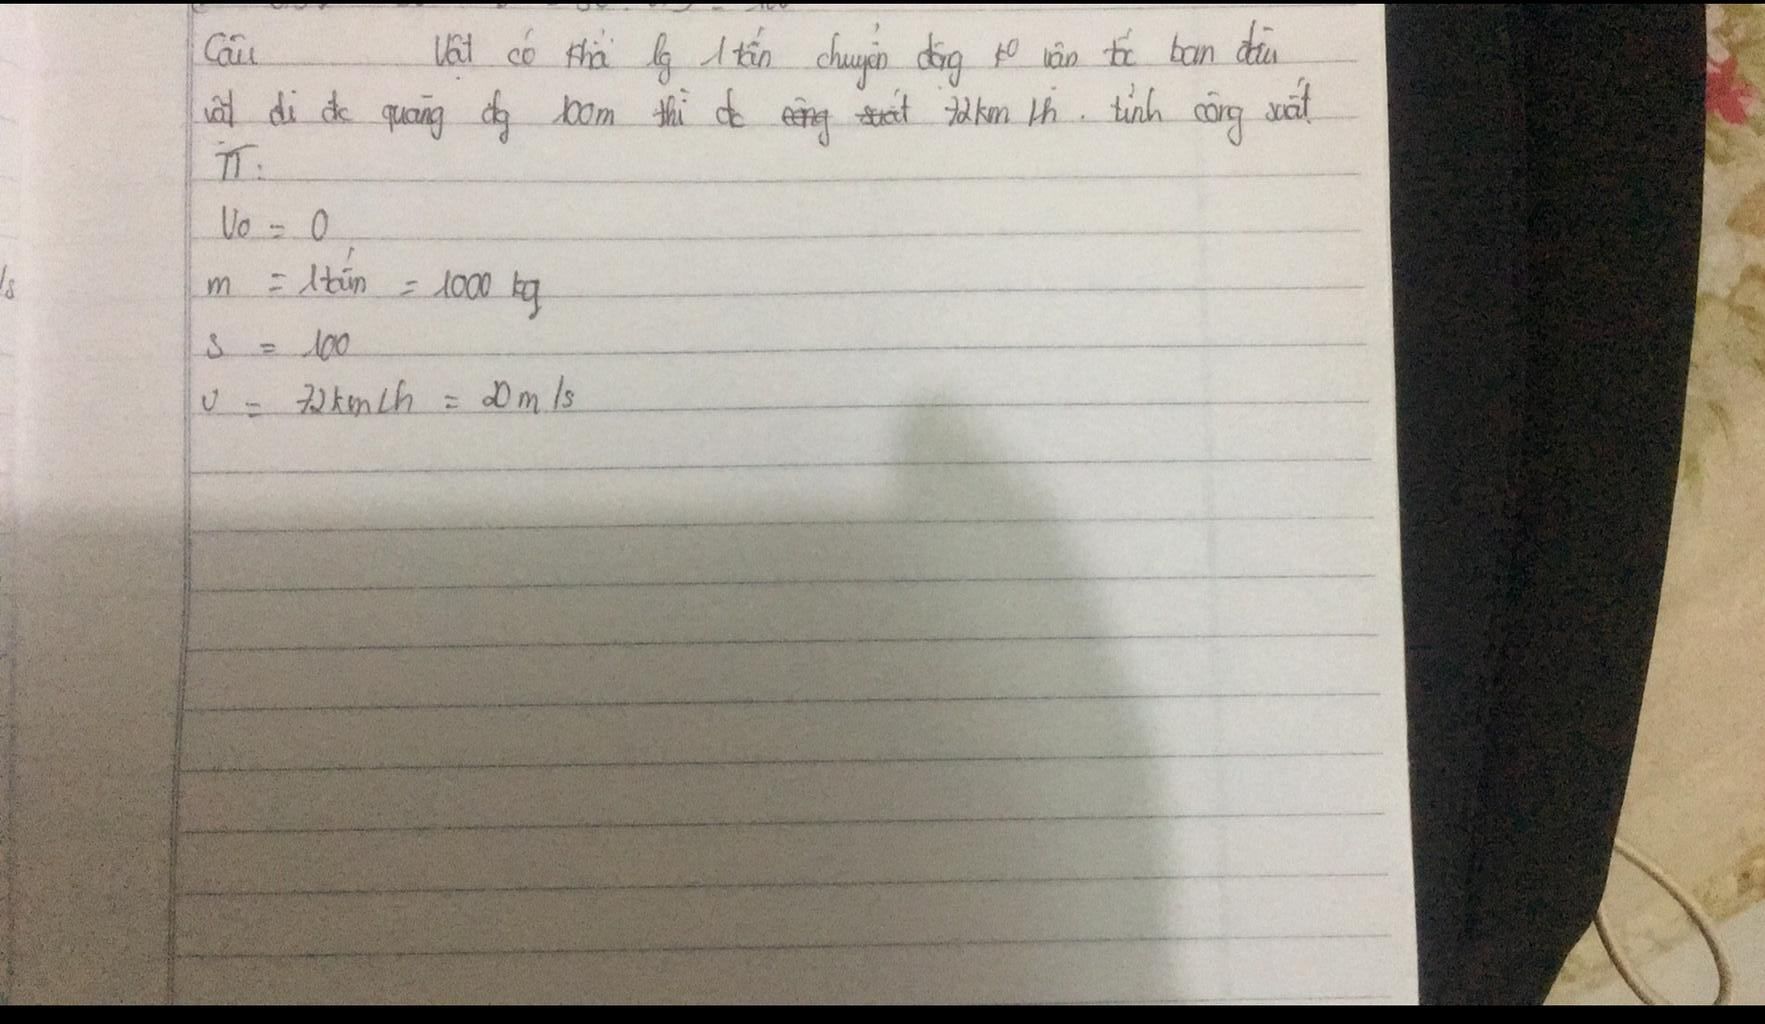 Câu Vật có khả lg 1 tấn chuyển động ko vận tốc ban đầu
vật đi đc quãng đg 100m thì đc công suất 72km/h. tính công xuất
TT:
Vo = 0
m = 1 tấn = 1000 kg
s = 100
v = 72km/h = 20m/s
/s